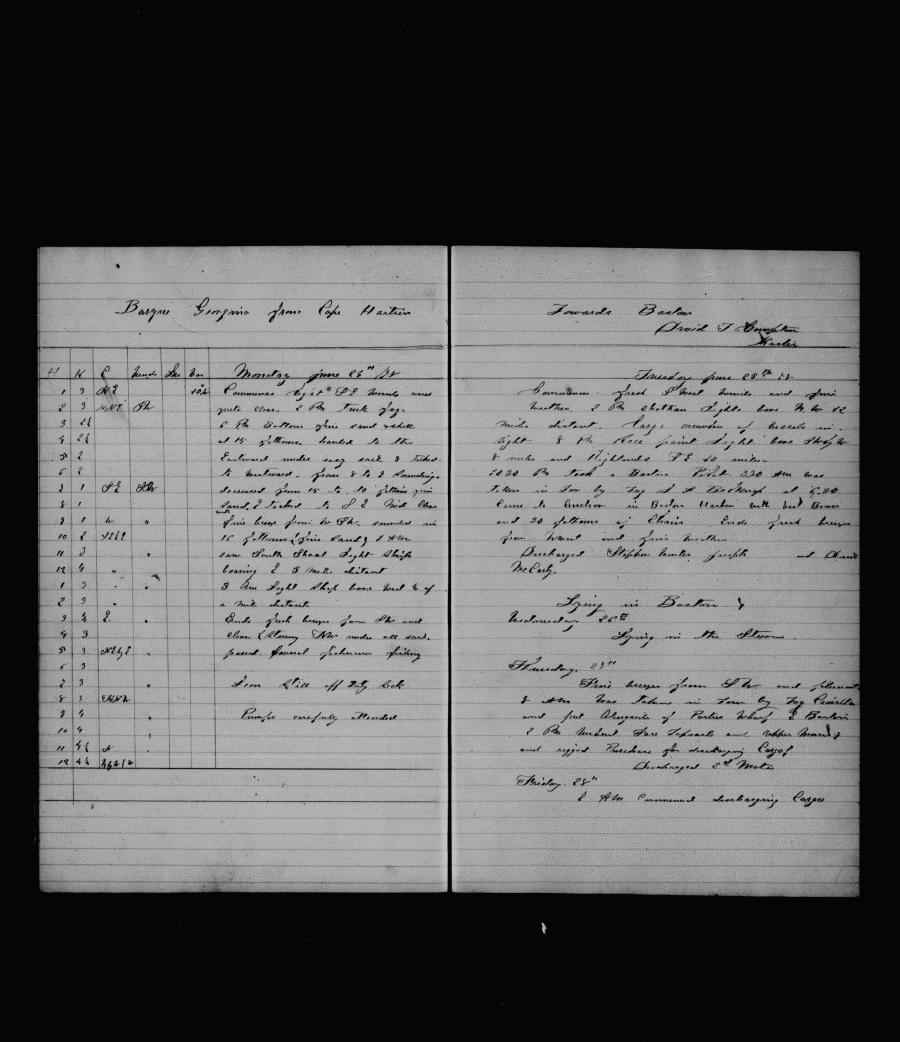 Barque Georgina from Cape Haitien
H K C Winds Bar
Monday June 24th
1 3 N E Commences light S E winds and
2 3 NNE quite clear. 2 PM Thick fog.
3 2½ 6 PM Bottom fine sand & shell
4 2½ at 15 fathoms hauled to the
5 2 Eastward under easy sail & tacked
6 2 to westward. from 8 to 9 Soundings
7 1 S E decreased from 15 to 10 fathoms fine
8 1 sand, & tacked to S E Mid Clear
9 1 " fine breeze from W SW. sounded in
10 2 15 fathoms (fine sand) 1 AM
11 3 " saw South Shoal Light Ship
12 4 " " bearing E 5 miles distant
1 3 " " 3 AM Light Ship bore West ½ of
2 3 " a mile distant.
3 4 E " Ends fresh breeze from SW and
4 3 clear under all sail.
5 3 " passed Several fishermen fishing
6 3
7 3 " Still off Duty Sick
8 3
9 4 " Pumps carefully attended
10 4
11 4½ N "
12 4½
Towards Boston
David T
Master
Tuesday June 25th
Commences fresh S West winds and fine
weather. 2 PM Chatham Lights bore 12
miles distant. large number of vessels in
sight 8 PM Race point Light bore
8 miles and Highlands S E 10 miles.
10.30 PM took a Boston Pilot. 3.30 AM was
taken in tow by Tug at 6.20
Came to Anchor in Boston Harbor with Best Bower
and 30 fathoms of Chain Ends fresh breeze
from West and fine weather
Discharged Stephen Joseph and
McCarty
Lying in Boston
Wednesday 26th
Lying in the Stream.
Thursday. 27th
Fine breeze from S W and pleasant
8 AM Was Taken in Tow by Tug Camilla
and put Alongside of Porter Wharf E Boston
2 PM Unbent Fore Topsails and upper
and rigged Purchase for discharging Cargo
Discharged 2nd Mate
Friday. 28th
7 AM Commenced discharging Cargo